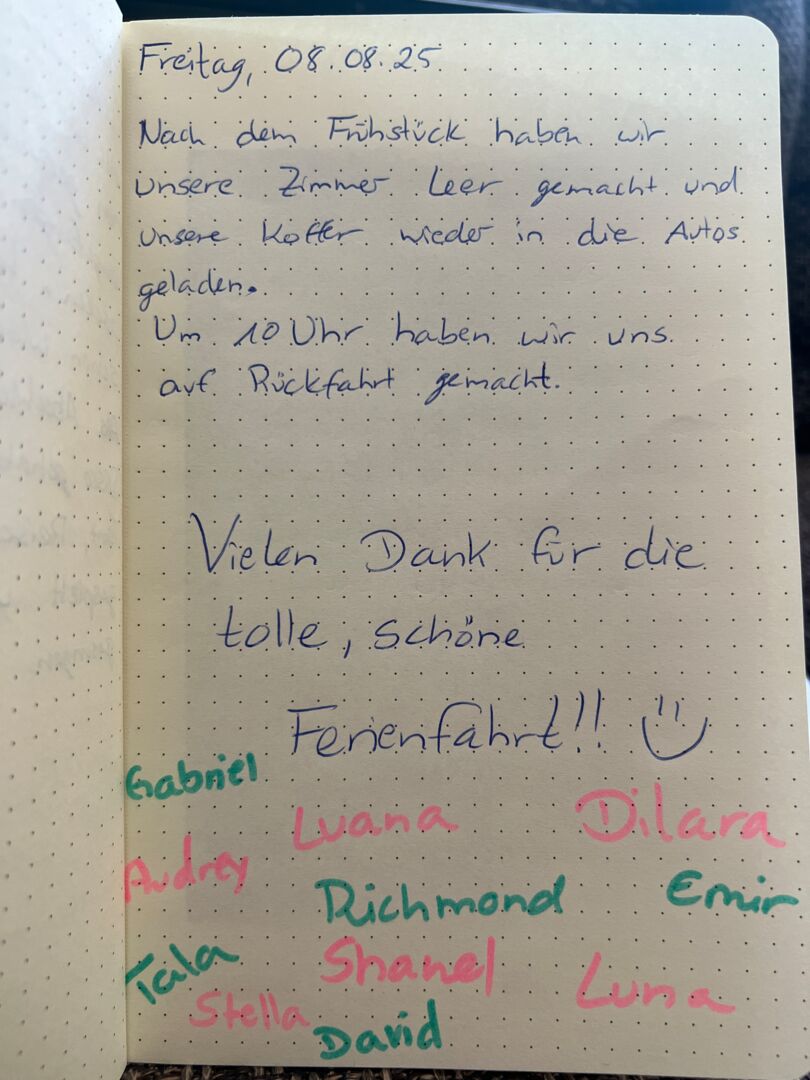 Freitag, 08.08.25
Nach dem Frühstück haben wir
unsere Zimmer Leer gemacht und
unsere Koffer wieder in die Autos
geladen.
Um 10 Uhr haben wir uns
auf Rückfahrt gemacht.
Vielen Dank für die
tolle, schöne
Ferienfahrt!!
Gabriel
Luana Dilara
Audrey
Richmond Emir
Tala Shanel Luna
Stella
David